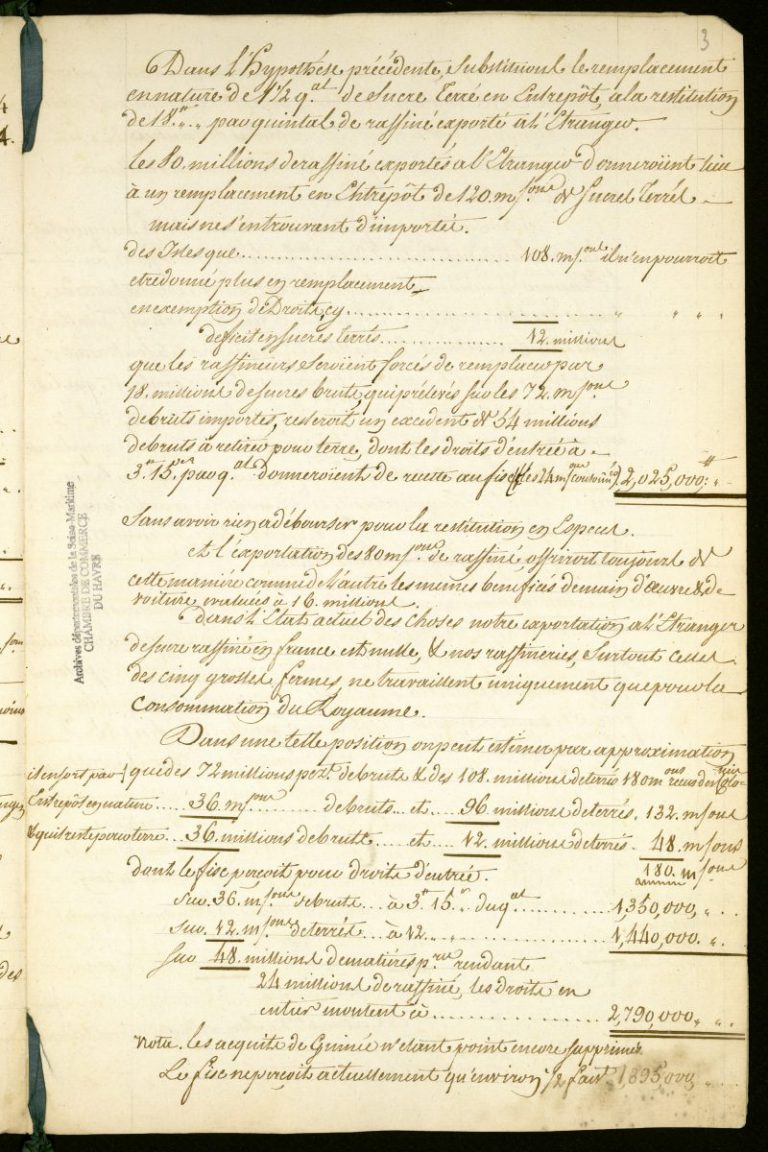 3
Dans l'hypothése précédente, substituont le remplacement
en nature de 1 1/2 q.al de Sucre Terré en Entrepôt, a la restitution
de 18.tt „ . „ par quintal de raffiné exporté a l'Etranger.
les 80. millions de raffiné exportés a l'Etranger donneroient lieu
à un remplacement en Entrepôt de 120. m/ons de Sucres Terrés
mais ne s'entrouvant d'importés.
des Isles que .......... 108. m/ons il n'en pourroit
etre donné plus en remplacement
en exemption de Droits, cy .......... „ „ „ „
deficit en sucres terrés .......... 12. millions
que les raffineurs seroient forcés de remplacer par
18. millions de sucres bruts, qui prélevés sur les 72. m/ons
de bruts importés, resteroit un excédent de 54 millions
de bruts à retirer pour terre, dont les droits d'entrée à
3.tt 15.s par q.al donneroient de recette au fisc (les 24 m/ons consommés). 2,025,000.tt „
Sans avoir rien a débourser pour la restitution en Especes.
Et l'exportation des 80 m/ons de raffiné offriroit toujours de
cette maniére comme de l'autre les mêmes benefices de main d'œuvre & de
voiture, evalués à 16. millions.
Dans l'Etat actuel des choses notre exportation a l'Etranger
de sucre raffiné en france est nulle, & nos raffineries, surtout celles
des cinq grosses fermes, ne travaillent uniquement que pour la
Consommation du Royaume.
Dans une telle position on peut estimer par approximation
que des 72 millions pezt. de bruts & des 108. millions de terrés 180 m/ons recus des Isles
il en sort par
Entrepôt en nature .... 36. m/ons .... de bruts .. et .. 96 millions de terrés. 132. m/ons
& qu'il rente pour terre .. 36. millions de bruts .... et .... 12 millions de terrés . 48. m/ons
180. m/ons
dont le fisc perçoit pour droits d'entrée.
sur 36. m/ons de bruts ... à 3.tt 15.s „ du q.al .......... 1,350,000, „ .
sur 12. m/ons de terrés ... à 12. „ . „ .......... 1,440,000. „ .
sur 48. millions de matiéres p.res rendant
24 millions de raffiné, les droits en
entier montent à .......... 2,790,000, „ „ .
Nota. les acquits de Guinée n'étant point encore supprimés
Le fisc ne perçoit actuellement qu'environ 1/2 fait. 1,395,000,
Archives départementales de la Seine-Maritime
CHAMBRE DE COMMERCE
DU HAVRE